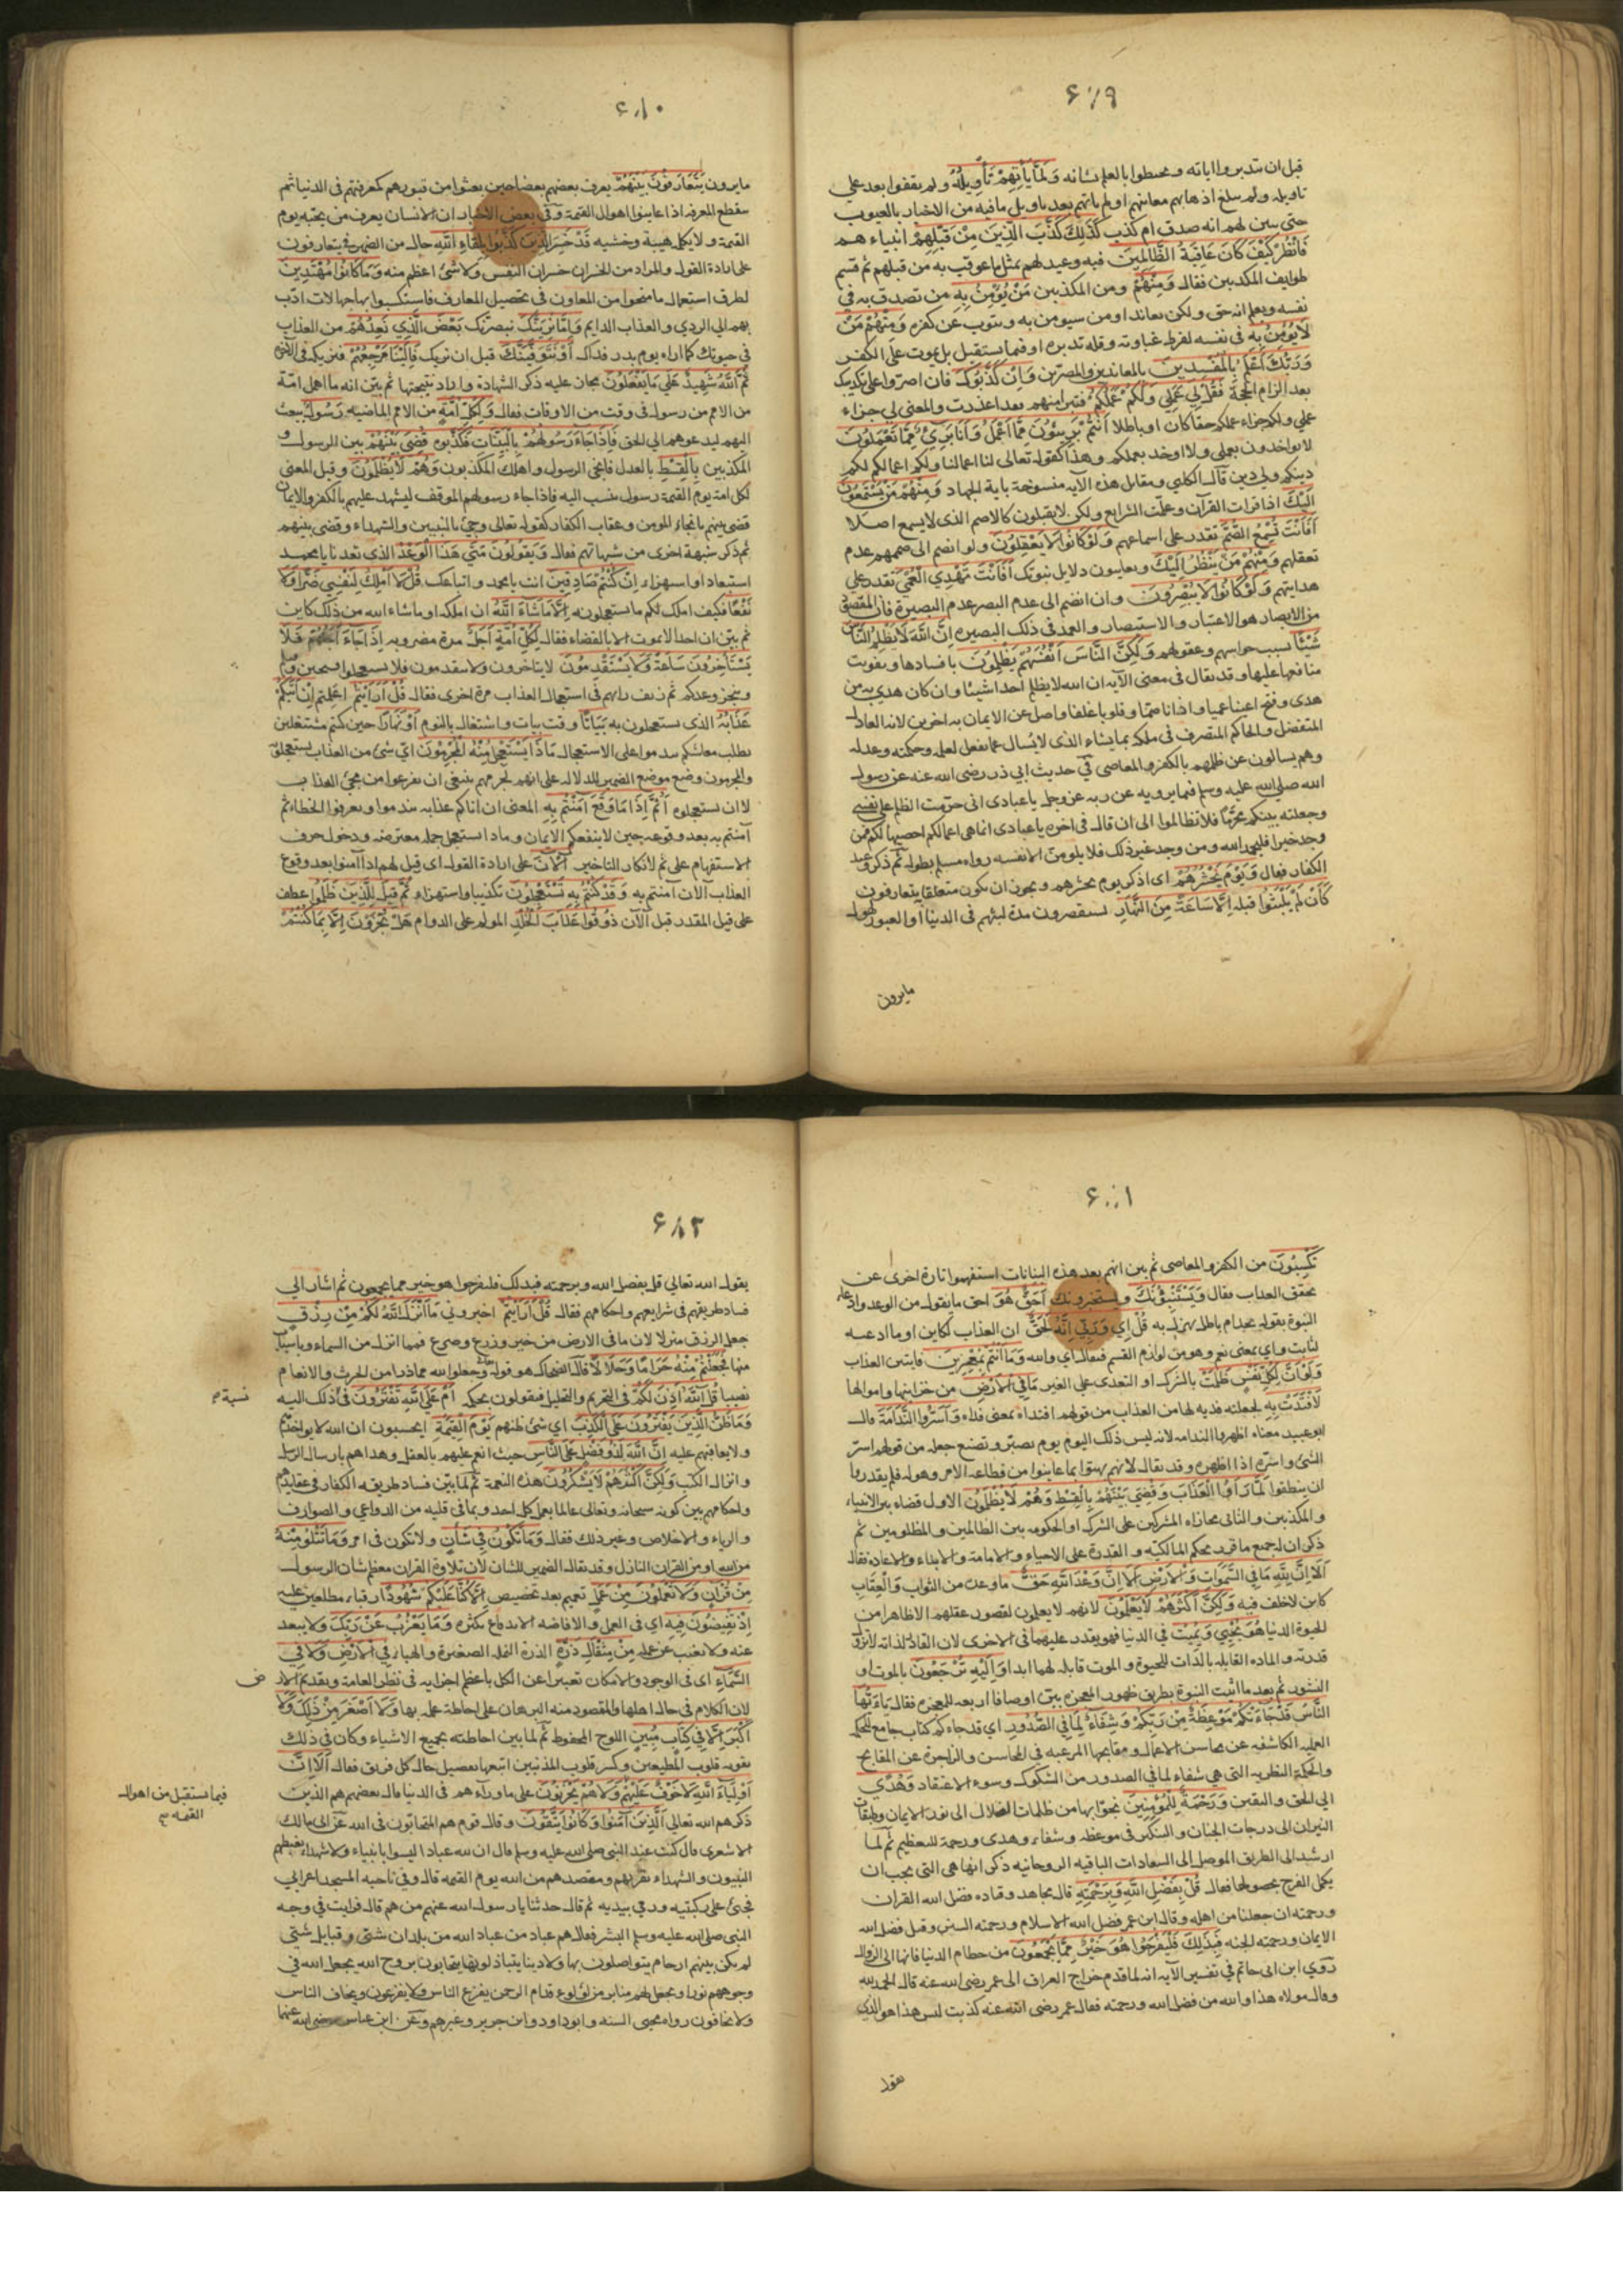 ٦٧٩
قبل ان يتدبروا اياته ويحيطوا بالعلم بشانه وَلَمَّا يَأْتِهِمْ تَأْوِيلُهُ ولم يقفوا بعد على
تاويله ولم يبلغ اذهانهم معانيهم او لم ياتهم بعد تاويل ما فيه من الاخبار بالغيوب
حتى يتبين لهم انه صدق ام كذب كَذَلِكَ كَذَّبَ الَّذِينَ مِنْ قَبْلِهِمْ انبياءهم
فَانْظُرْ كَيْفَ كَانَ عَاقِبَةُ الظَّالِمِينَ فيه وعيد لهم بمثل ما عوقب به من قبلهم ثم قسم
طوايف المكذبين فقال وَمِنْهُمْ ومن المكذبين مَنْ يُؤْمِنُ بِهِ من تصدق به في
نفسه ويعلم انه حق ولكن يعاند او من سيومن به ويتوب عن كفره وَمِنْهُمْ مَنْ
لَا يُؤْمِنُ بِهِ في نفسه لفرط غباوته وقلة تدبره او فيما يستقبل بل يموت على الكفر
وَرَبُّكَ أَعْلَمُ بِالْمُفْسِدِينَ بالمعاندين والمصرين وَإِنْ كَذَّبُوكَ فان اصروا على تكذيبك
بعد الزام الحجة فَقُلْ لِي عَمَلِي وَلَكُمْ عَمَلُكُمْ فتبرا منهم بعد اعذرت والمعنى لي جزاء
عملي ولكم جزاء عملكم حقا كان او باطلا أَنْتُمْ بَرِيئُونَ مِمَّا أَعْمَلُ وَأَنَا بَرِيءٌ مِمَّا تَعْمَلُونَ
لا تواخذون بعملي ولا اوخذ بعملكم وهذا كقوله تعالى لنا اعمالنا ولكم اعمالكم لكم
دينكم ولي دين قال الكلبي ومقاتل هذه الآيه منسوخة باية الجهاد وَمِنْهُمْ مَنْ يَسْتَمِعُونَ
إِلَيْكَ اذا قرات القرآن وعلمت الشرايع ولكن لا يقبلون كالاصم الذى لا يسمع اصلا
أَفَأَنْتَ تُسْمِعُ الصُّمَّ تقدر على اسماعهم وَلَوْ كَانُوا لَا يَعْقِلُونَ ولو انضم الى صممهم عدم
تعقلهم وَمِنْهُمْ مَنْ يَنْظُرُ إِلَيْكَ ويعاينون دلايل نبوتك أَفَأَنْتَ تَهْدِي الْعُمْيَ تقدر على
هدايتهم وَلَوْ كَانُوا لَا يُبْصِرُونَ وان انضم الى عدم البصر عدم البصيرة فان المقصود
من الابصار هو الاعتبار والاستبصار والعمدة في ذلك البصيره إِنَّ اللَّهَ لَا يَظْلِمُ النَّاسَ
شَيْئًا بسبب حواسهم وعقولهم وَلَكِنَّ النَّاسَ أَنْفُسَهُمْ يَظْلِمُونَ بافسادها وتفويت
منافعها عليها وقد يقال في معنى الآيه ان الله لا يظلم احدا شيئا وان كان هدى به من
هدى وفتح اعينا عميا واذانا صما وقلوبا غلفا واضل عن الايمان به اخرين لانه العادل
المتفضل والحاكم المتصرف في ملكه بما يشاء الذى لا يُسال عما يفعل لعلمه وحكمته وعدله
وهم يسالون عن ظلمهم بالكفر والمعاصي في حديث ابي ذر رضى الله عنه عن رسول
الله صلى الله عليه وسلم فيما يرويه عن ربه عز وجل يا عبادى انى حرمت الظلم على نفسي
وجعلته بينكم محرّمًا فلا تظالموا الى ان قال في اخره يا عبادى انما هى اعمالكم احصيها لكم فمن
وجد خيرا فليحمد الله ومن وجد غير ذلك فلا يلومن الا نفسه رواه مسلم بطوله ثم ذكر وعيد
الكفار فقال وَيَوْمَ يَحْشُرُهُمْ اى اذكر يوم يحشرهم ويجوز ان يكون متعلقا بيتعارفون
كَأَنْ لَمْ يَلْبَثُوا قبله إِلَّا سَاعَةً مِنَ النَّهَارِ يستقصرون مدة لبثهم في الدنيا او القبور لهول
مايرون
٦٨٠
مايرون يَتَعَارَفُونَ بَيْنَهُمْ يعرف بعضهم بعضا حين بعثوا من قبورهم كمعرفتهم في الدنيا ثم
ينقطع المعرفه اذا عاينوا اهوال القيمة وفي بعض الاخبار ان الانسان يعرف من بجنبه يوم
القيمة ولا يكلمه هيبة وخشيه قَدْ خَسِرَ الَّذِينَ كَذَّبُوا بِلِقَاءِ اللَّهِ حال من الضمير في يتعارفون
على ارادة القول والمراد من الخسران خسران النفس ولا شئ اعظم منه وَمَا كَانُوا مُهْتَدِينَ
لطرق استعمال ما منحوا من المعاون في تحصيل المعارف فاستكسبوا بها جهالات ادت
بهم الى الردي والعذاب الدايم وَإِمَّا نُرِيَنَّكَ نبصرنك بَعْضَ الَّذِي نَعِدُهُمْ من العذاب
في حيوتك كما اراه يوم بدر فذاك أَوْ نَتَوَفَّيَنَّكَ قبل ان نريك فَإِلَيْنَا مَرْجِعُهُمْ فنريكه في الاخره
ثُمَّ اللَّهُ شَهِيدٌ عَلَى مَا يَفْعَلُونَ مجاز عليه ذكر الشهادة واراد نتيجتها ثم بيّن انه ما اهمل امّة
من الامم من رسول في وقت من الاوقات فقال وَلِكُلِّ أُمَّةٍ من الامم الماضيه رَسُولٌ يبعث
اليهم ليدعوهم الى الحق فَإِذَا جَاءَ رَسُولُهُمْ بالبينات فكذبوه قُضِيَ بَيْنَهُمْ بين الرسول و
المكذبين بِالْقِسْطِ بالعدل فانجى الرسول واهلك المكذبون وَهُمْ لَا يُظْلَمُونَ وقيل المعنى
لكل امة يوم القيمة رسول ينسب اليه فاذا جاء رسولهم الموقف ليشهد عليهم بالكفر والايمان
قضى بينهم بانجاء المومن وعقاب الكفار كقوله تعالى وجئ بالنبيين والشهداء وقضى بينهم
ثم ذكر شبهة اخرى من شبهاتهم فقال وَيَقُولُونَ مَتَى هَذَا الْوَعْدُ الذى تعدنا يا محمد
استبعادا واستهزاء إِنْ كُنْتُمْ صَادِقِينَ انت يا محمد واتباعك قُلْ لَا أَمْلِكُ لِنَفْسِي ضَرًّا وَلَا
نَفْعًا فكيف املك لكم ما يستعجلون به إِلَّا مَا شَاءَ اللَّهُ ان املكه او ما شاء الله من ذلك كاين
ثم بيّن ان احدا لا يموت الا بالقضاء فقال لِكُلِّ أُمَّةٍ أَجَلٌ مدة مضروبه إِذَا جَاءَ أَجَلُهُمْ فَلَا
يَسْتَأْخِرُونَ سَاعَةً وَلَا يَسْتَقْدِمُونَ لا يتاخرون ولا يتقدمون فلا تستعجلوا فسيحين وقتكم
وينجز وعدكم ثم زيف رايهم في استعجال العذاب مرة اخرى فقال قُلْ أَرَأَيْتُمْ اعلمتم إِنْ أَتَاكُمْ
عَذَابُهُ الذى تستعجلون به بَيَاتًا وقت بيات واشتغال بالنوم أَوْ نَهَارًا حين كنتم مشتغلين
بطلب معاشكم مَاذَا يَسْتَعْجِلُ مِنْهُ الْمُجْرِمُونَ اىّ شئ من العذاب يستعجلونه
والمجرمون وضع موضع الضمير للدلاله على انهم لجرمهم ينبغى ان يفزعوا من مجئ العذاب
لا ان يستعجلوه أَثُمَّ إِذَا مَا وَقَعَ آمَنْتُمْ بِهِ المعنى ان اتاكم عذابه تندموا ويعرفوا الخطاء ثم
آمنتم به بعد وقوعه حين لا ينفعكم الايمان وماذا يستعجل جمله معترضه ودخول حرف
الاستفهام على ثم لانكار التاخير آلْآنَ على ارادة القول اى قيل لهم اذا آمنوا بعد وقوع
العذاب الآن آمنتم به وَقَدْ كُنْتُمْ بِهِ تَسْتَعْجِلُونَ تكذيبا واستهزاء ثُمَّ قِيلَ لِلَّذِينَ ظَلَمُوا عطف
على قيل المقدر قبل الآن ذُوقُوا عَذَابَ الْخُلْدِ المولم على الدوام هَلْ تُجْزَوْنَ إِلَّا بِمَا كُنْتُمْ
٦٨١
تَكْسِبُونَ من الكفر والمعاصى ثم بين انهم بعد هذه البيانات استفهموا تارة اخرى عن
تحقق العذاب فقال وَيَسْتَنْبِئُونَكَ ويستخبرونك أَحَقٌّ هُوَ احق ما يقول من الوعد وادعاء
النبوة بقوله بجد ام باطل يهزل به قُلْ إِي وَرَبِّي إِنَّهُ لَحَقٌّ ان العذاب لكاين او ما ادعيه
لثابت واي بمعنى نعم وهو من لوازم القسم فيقال اي والله وَمَا أَنْتُمْ بِمُعْجِزِينَ فايتين العذاب
وَلَوْ أَنَّ لِكُلِّ نَفْسٍ ظَلَمَتْ بالشرك او التعدى على الغير مَا فِي الْأَرْضِ من خزاينها واموالها
لَافْتَدَتْ بِهِ لجعلته فديه لها من العذاب من قولهم افتداه بمعنى فداه وَأَسَرُّوا النَّدَامَةَ قال
ابو عبيد معناه اظهروا الندامه لانه ليس ذلك اليوم يوم تصبّر وتصنع جعله من قولهم اسر
الشئ واسرّه اذا اظهره وقد يقال لانهم بهتوا بما عاينوا من فظاعة الامر وهوله فلم يقدروا
ان ينطقوا لَمَّا رَأَوُا الْعَذَابَ وَقُضِيَ بَيْنَهُمْ بِالْقِسْطِ وَهُمْ لَا يُظْلَمُونَ الاول قضاء بين الانبياء
والمكذبين والثانى مجازاه المشركين على الشرك او الحكومه بين الظالمين والمظلومين ثم
ذكر ان لجميع ما قرر بحكم المالكيه والقدرة على الاحياء والاماته والابداء والاعاده فقال
أَلَا إِنَّ لِلَّهِ مَا فِي السَّمَاوَاتِ وَالْأَرْضِ أَلَا إِنَّ وَعْدَ اللَّهِ حَقٌّ ما وعد من الثواب والعقاب
كاين لا خلف فيه وَلَكِنَّ أَكْثَرَهُمْ لَا يَعْلَمُونَ لانهم لا يعلمون لقصور عقلهم الا ظاهرا من
الحيوة الدنيا هُوَ يُحْيِي وَيُمِيتُ في الدنيا فهو يقدر عليهما في الاخرى لان القادر لذاته لا تزول
قدرته والماده القابله بالذات للحيوة والموت قابله لهما ابدا وَإِلَيْهِ تُرْجَعُونَ بالموت او
النشور ثم بعد ما اثبت النبوة بطريق ظهور المعجزه بيّن اوصافا اربعه للمعجزه فقال يَا أَيُّهَا
النَّاسُ قَدْ جَاءَتْكُمْ مَوْعِظَةٌ مِنْ رَبِّكُمْ وَشِفَاءٌ لِمَا فِي الصُّدُورِ اى قد جاءكم كتاب جامع للحكمة
العمليه الكاشفه عن محاسن الاعمال ومقابحها المرغبه في المحاسن والزاجرة عن المقابح
والحكمة النظريه التى هى شفاء لما في الصدور من الشكوك وسوء الاعتقاد وَهُدًى
الى الحق واليقين وَرَحْمَةٌ لِلْمُؤْمِنِينَ نجوا بها من ظلمات الضلال الى نور الايمان وطبقات
النيران الى درجات الجنان والتنكير فى موعظه وشفاء وهدى ورحمة للتعظيم ثم لما
ارشد الى الطريق الموصل الى السعادات الباقيه الروحانيه ذكر انها هى التى يجب ان
يكمل الفرح بحصولها فقال قُلْ بِفَضْلِ اللَّهِ وَبِرَحْمَتِهِ قال مجاهد وقتاده فضل الله القران
ورحمته ان جعلنا من اهله وقال ابن عمر فضل الله الاسلام ورحمته السنن وقيل فضل الله
الايمان ورحمته الجنه فَبِذَلِكَ فَلْيَفْرَحُوا هُوَ خَيْرٌ مِمَّا يَجْمَعُونَ من حطام الدنيا فانها الى الزوال
روي ابن ابى حاتم فى تفسير الآيه انه لما قدم خراج العراق الى عمر رضى الله عنه قال الحمد لله
وقال مولاه هذا والله من فضل الله ورحمته فقال عمر رضى الله عنه كذبت ليس هذا هو الذي
يقول
٦٨٢
يقول الله تعالى قل بفضل الله وبرحمته فبذلك فليفرحوا هو خير مما يجمعون ثم اشار الى
فساد طريقهم فى شرايعهم واحكامهم فقال قُلْ أَرَأَيْتُمْ اخبروني مَا أَنْزَلَ اللَّهُ لَكُمْ مِنْ رِزْقٍ
جعل الرزق منزلا لان ما فى الارض من خير وزرع وضرع فمما انزل من السماء وباسباب
منها فَجَعَلْتُمْ مِنْهُ حَرَامًا وَحَلَالًا قال الضحاك هو قوله تعالى وجعلوا لله مما ذرا من الحرث والانعام
نصيبا قُلْ آللَّهُ أَذِنَ لَكُمْ فى التحريم والتحليل فيقولون بحكمه أَمْ عَلَى اللَّهِ تَفْتَرُونَ فى ذلك اليه
نسبة م
وَمَا ظَنُّ الَّذِينَ يَفْتَرُونَ عَلَى اللَّهِ الْكَذِبَ اي شئ ظنهم يَوْمَ الْقِيَمَةِ ايحسبون ان الله لا يواخذهم
ولا يعاقبهم عليه إِنَّ اللَّهَ لَذُو فَضْلٍ عَلَى النَّاسِ حيث انعم عليهم بالعقل وهداهم بارسال الرسل
وانزال الكتب وَلَكِنَّ أَكْثَرَهُمْ لَا يَشْكُرُونَ هذه النعمة ثم لما بيّن فساد طريقه الكفار فى عقايدهم
واحكامهم بين كونه سبحانه وتعالى عالما بعمل كل احد وبما فى قلبه من الدواعي والصوارف
والرياء والاخلاص وغير ذلك فقال وَمَا تَكُونُ فِي شَأْنٍ ولا تكون فى امر وَمَا تَتْلُو مِنْهُ
من الله او من القران النازل وقد يقال الضمير للشان لان تلاوة القران معظم شان الرسول
مِنْ قُرْآنٍ وَلَا تَعْمَلُونَ مِنْ عَمَلٍ تعميم بعد تخصيص إِلَّا كُنَّا عَلَيْكُمْ شُهُودًا رقباء مطلعين عليه
إِذْ تُفِيضُونَ فِيهِ اى فى العمل والافاضه الاندفاع بكثره وَمَا يَعْزُبُ عَنْ رَبِّكَ ولا يبعد
عنه ولا يغيب عن علمه مِنْ مِثْقَالِ ذَرَّةٍ الذرة النملة الصغيرة والهباء فِي الْأَرْضِ وَلَا فِي
السَّمَاءِ اى فى الوجود والامكان تعبيرا عن الكل باعظم اجزايه فى نظر العامة وتقديم الار
ض
لان الكلام فى حال اهلها والمقصود منه البرهان على احاطة علمه بها وَلَا أَصْغَرَ مِنْ ذَلِكَ وَلَا
أَكْبَرَ إِلَّا فِي كِتَابٍ مُبِينٍ اللوح المحفوظ ثم لما بين احاطته بجميع الاشياء وكان في ذلك
تقويه قلوب المطيعين وكسر قلوب المذنبين اتبعها تفصيل حال كل فريق فقال أَلَا إِنَّ
أَوْلِيَاءَ اللَّهِ لَا خَوْفٌ عَلَيْهِمْ وَلَا هُمْ يَحْزَنُونَ على ما وراءهم فى الدنيا قال بعضهم هم الذين
فيما يستقبل من اهوال
القيمه م
ذكرهم الله تعالى الَّذِينَ آمَنُوا وَكَانُوا يَتَّقُونَ وقال قوم هم المتحابون فى الله عن ابى مالك
الاشعرى قال كنت عند النبى صلى الله عليه وسلم قال ان لله عبادا ليسوا بانبياء ولا شهداء يغبطهم
النبيون والشهداء بقربهم ومقعدهم من الله يوم القيمه قال وفي ناحيه المسجد اعرابي
فجثى على ركبتيه ورمى بيديه ثم قال حدثنا يا رسول الله عنهم من هم قال فرايت في وجه
النبى صلى الله عليه وسلم البشر فقال هم عباد من عباد الله من بلدان شتى وقبايل شتى
لم يكن بينهم ارحام يتواصلون بها ولا دنيا يتباذلون بها يتحابون بروح الله يجعل الله في
وجوههم نورا ويجعل لهم منابر من لؤلؤ قدام الرحمن يفزع الناس ولا يفزعون ويخاف الناس
ولا يخافون رواه محيي السنه وابو داود وابن جرير وغيرهم وعن ابن عباس رضى الله عنهما